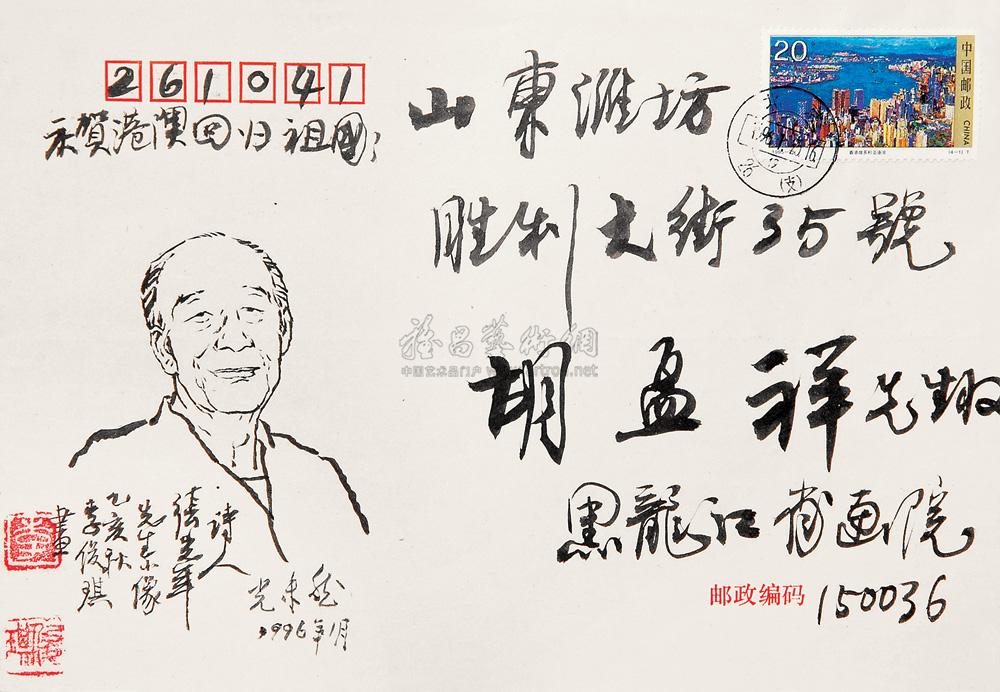 261041
永賀港澳回归祖國
山東潍坊
胜利大街35號
胡孟祥先生收
黑龍江書画院
邮政编码 150036
20
中国邮政
CHINA
诗人
張光年
先生像
乙亥秋
李俊琪
畫
光未然
1996年1月
中国艺术品门户 www.artron.net
(支)